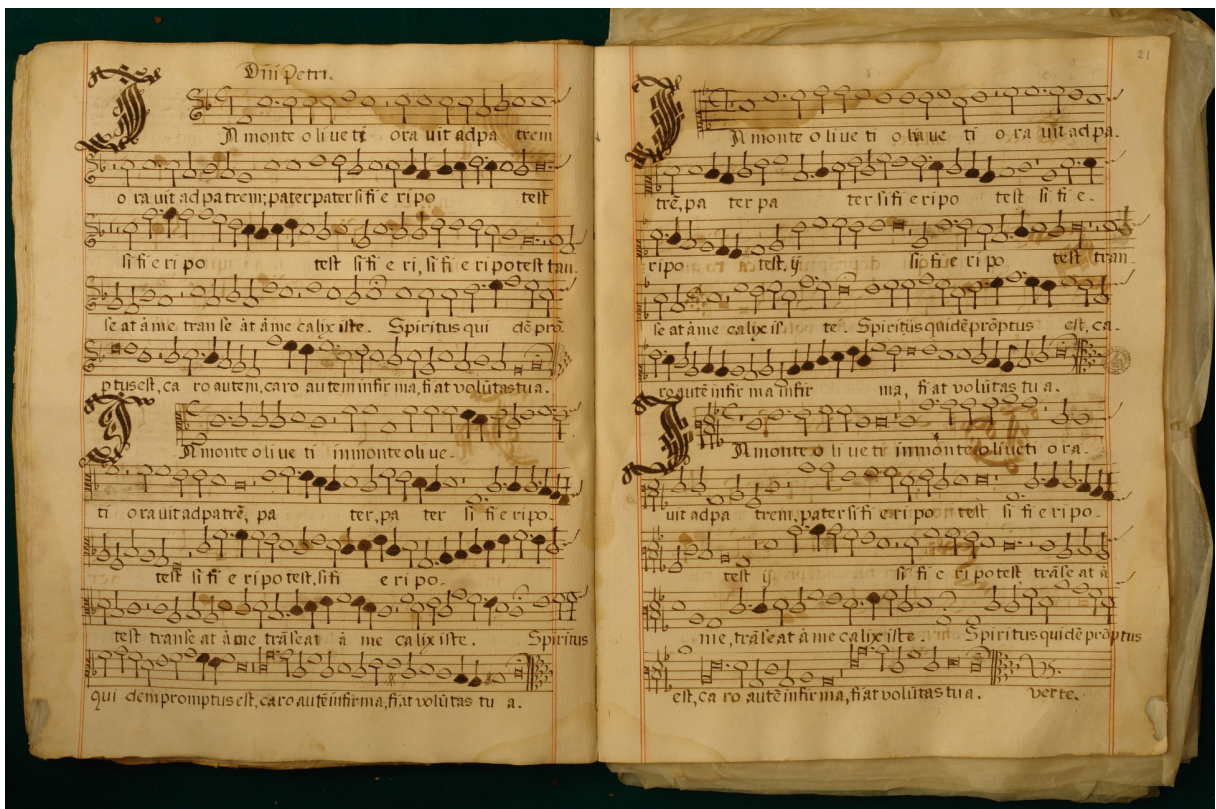 Dñi Petri.
IN monte o li ve ti ora vit ad pa trem
o ra vit ad pa trem; pater pater si fi e ri po test
si fi e ri po test si fi e ri, si fi e ri po test tan-
se at à me tran se àt à me calix iste. Spiritus qui dē prō-
ptus est, ca ro autem, caro au tem infir ma, fi at volūtas tu a.
IN monte o li ve ti in monte oli ve-
ti ora vit ad pa trē, pa ter, pa ter si fi e ri po-
test si fi e ri po test, si fi e ri po-
test transe at à me trāse at à me calix iste. Spiritus
qui dem promptus est, caro autē infir ma, fi at volūtas tu a.
21
IN monte o li ve ti o li ve ti o ra vit ad pa-
trē, pa ter pa ter si fi e ri po test si fi e-
ri po test, ij si fi e ri po test tran-
se at à me calix is te. Spiritus qui dē prōptus est, ca-
ro autē infir ma infir ma, fi at volūtas tu a.
IN monte o li ve ti in monte o li ve ti o ra-
vit ad pa trem, pater si fi e ri po test si fi e ri po-
test ij si fi e ri po test trāse at à
me, trāse at à me calix iste. Spiritus qui dē prōptus
est, ca ro autē infir ma, fi at volūtas tu a. verte.